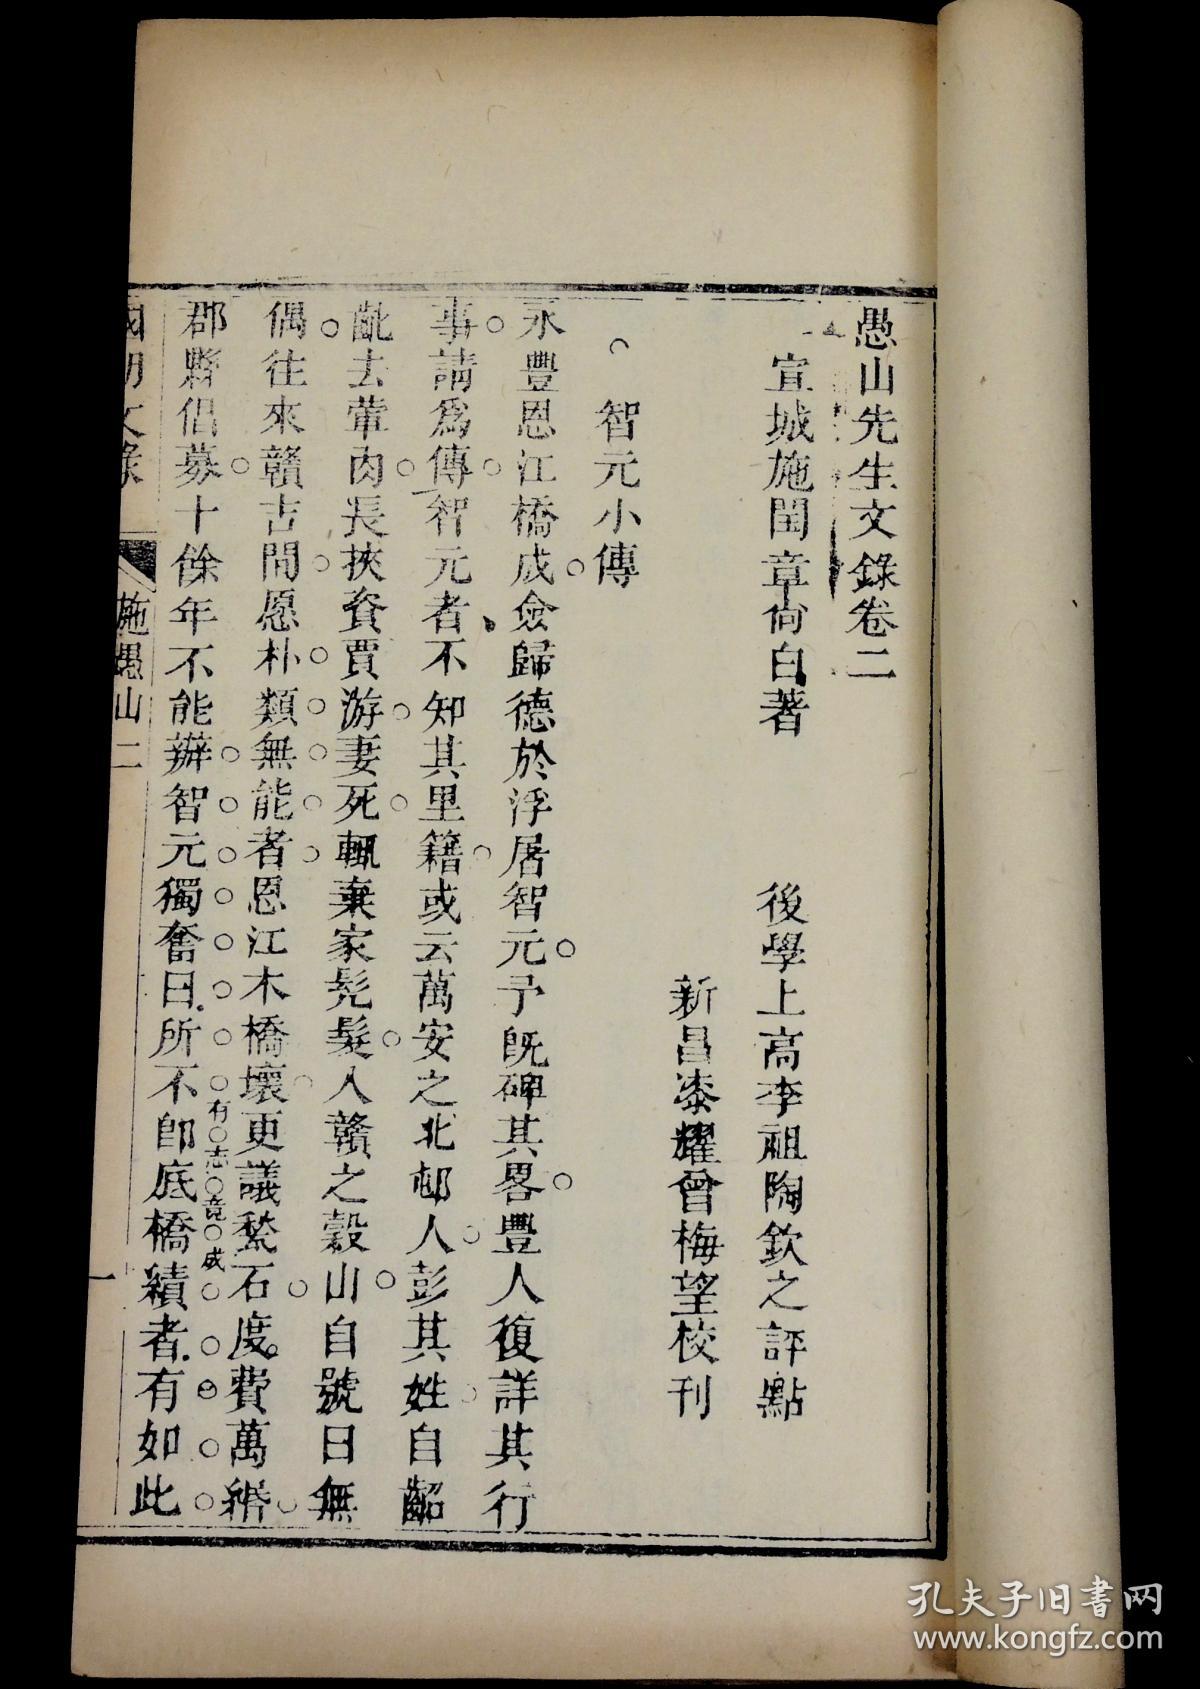 愚山先生文錄卷二
宣城施閏章尙白著
後學上高李祖陶欽之評點
新昌漆耀曾梅望校刊
智元小傳
永豐恩江橋成僉歸德於浮屠智元予旣碑其畧豐人復詳其行
事請爲傳智元者不知其里籍或云萬安之北邨人彭其姓自齠
齔去葷肉長挾資賈游妻死輒棄家髡髮入贛之穀山自號曰無
偶往來贛吉間愿朴類無能者恩江木橋壞更議甃石度費萬緡
郡縣倡募十餘年不能辦智元獨奮曰所不卽底橋績者有如此
有志竟成
國朝文錄
施愚山二
一
孔夫子旧书网
www.kongfz.com